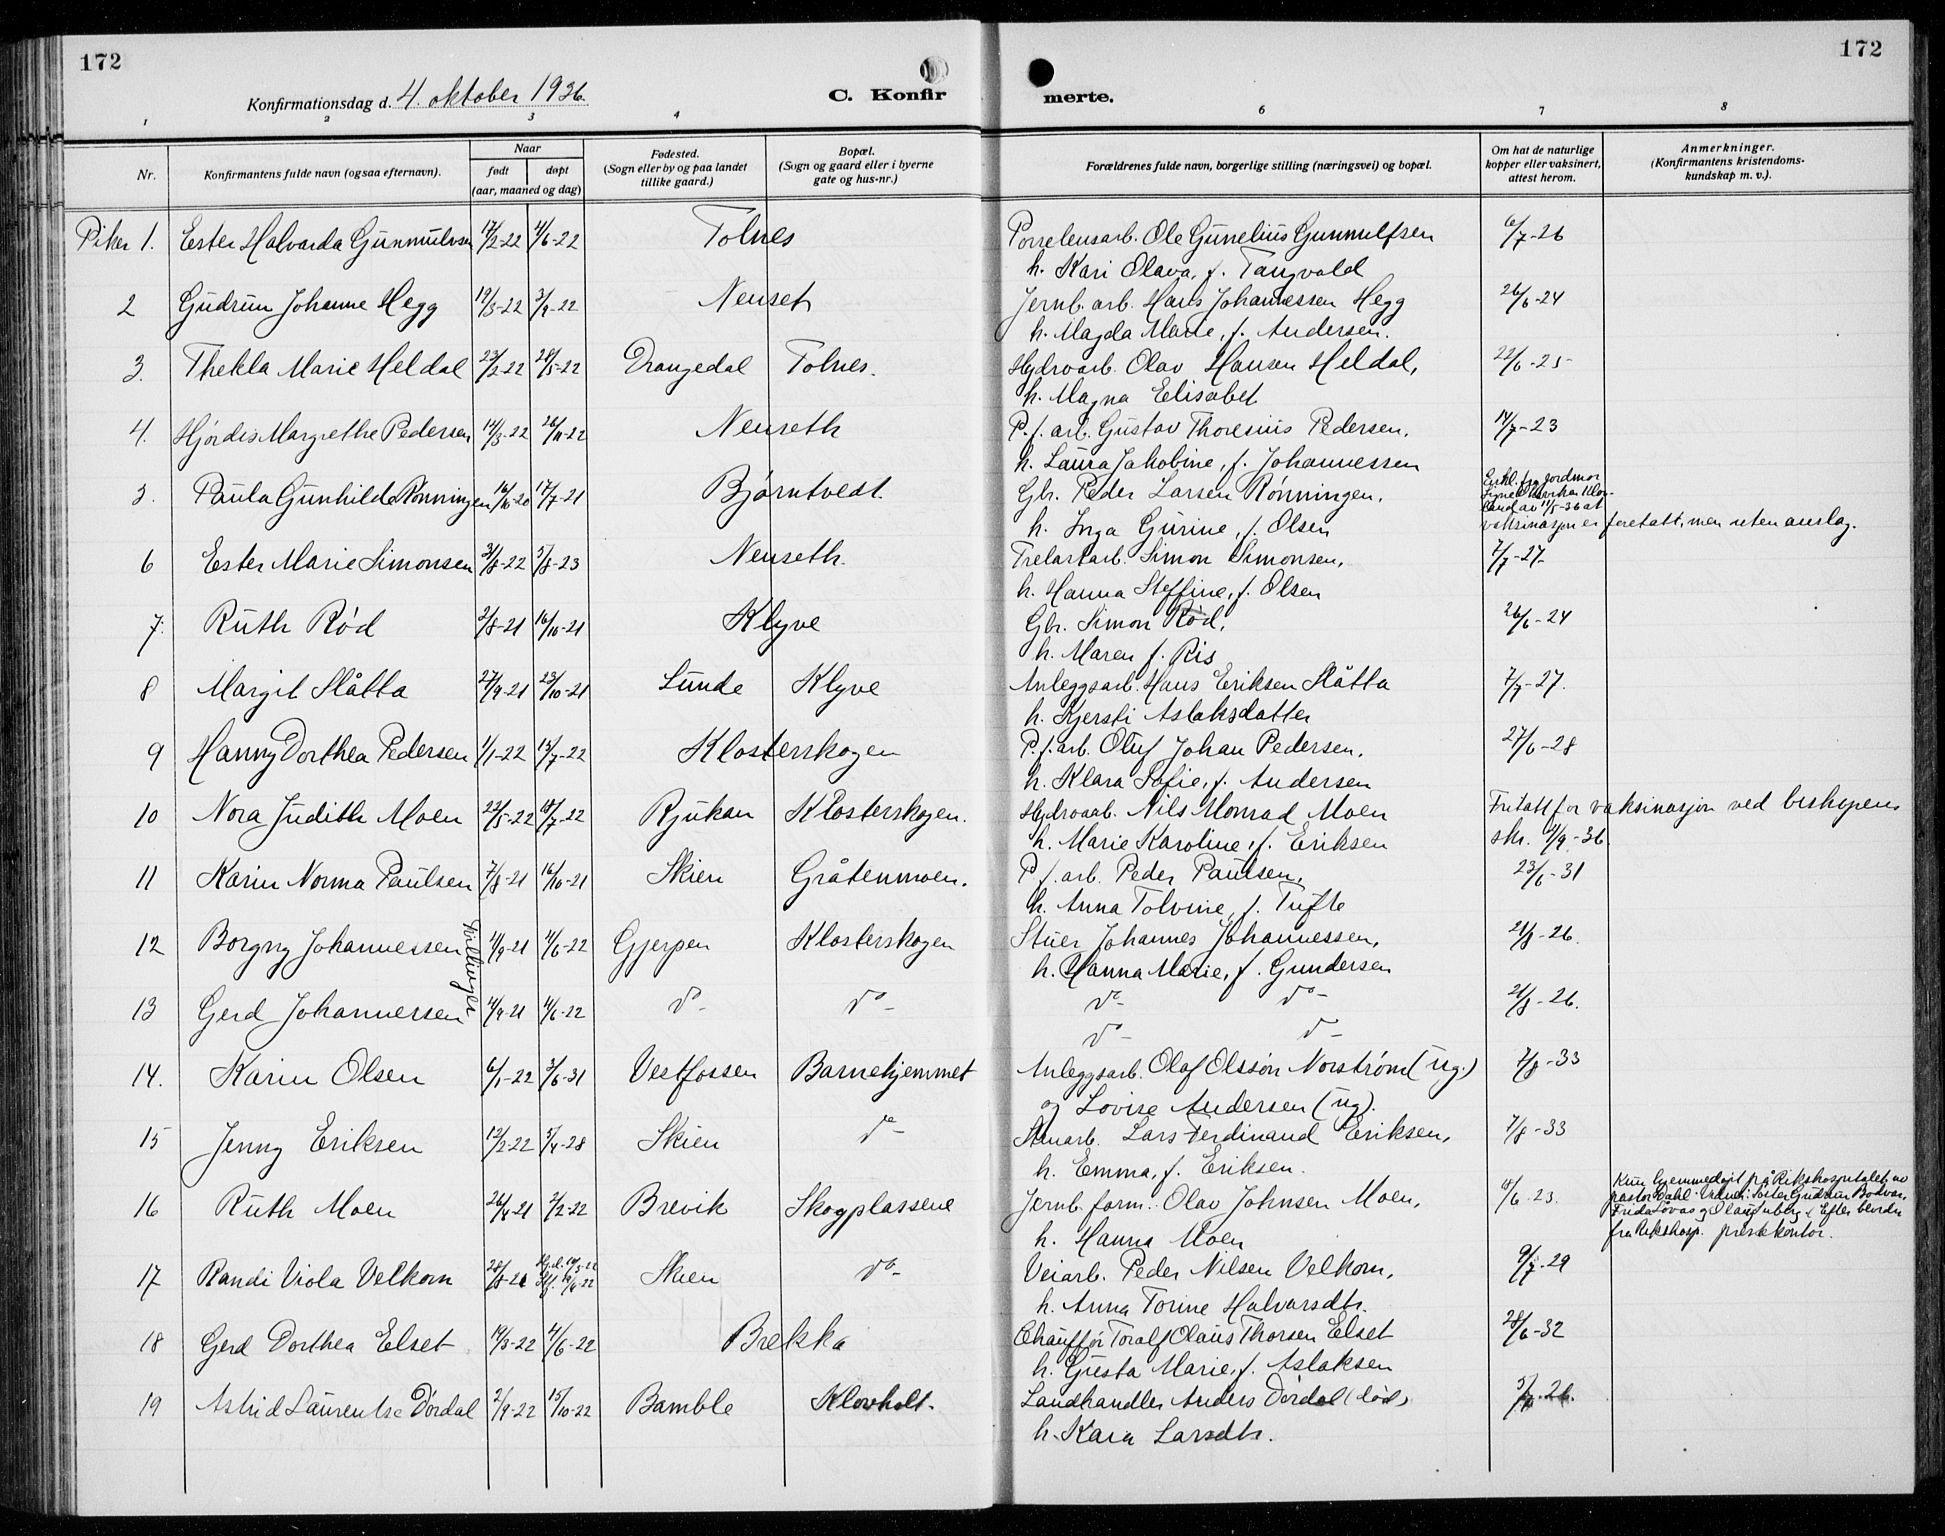 172
172
Konfirmationsdag d. 4. oktober 1936.
C. Konfir
merte.
1 2 3 4 6 7 8
Nr.
Konfirmantens fulde navn (ogsaa efternavn).
Naar
født
døpt
(aar, maaned og dag)
Fødested.
(Sogn eller by og paa landet
tillike gaard.)
Bopæl.
(Sogn og gaard eller i byerne
gate og hus-nr.)
Forældrenes fulde navn, borgerlige stilling (næringsvei) og bopæl.
Om hat de naturlige
kopper eller vaksinert,
attest herom.
Anmerkninger.
(Konfirmantens kristendoms-
kundskap m. v.).
Piker 1. Ester Halvarda Gunnulvsen 17/2-22 4/6-22 Tolnes Porselensarb. Ole Gunelius Gunnulfsen 6/7-26
h. Kari Olava, f. Tangvald
2 Gudrun Johanne Hegg 19/3-22 3/9-22 Nenset Jernb. arb. Hans Johannessen Hegg 26/6-24
h. Magda Marie, f. Andersen.
3. Thekla Marie Heldal 23/2-22 28/5-22 Drangedal Tolnes. Hydroarb. Olav Hansen Heldal, 22/6-25
h. Magna Elisabet
4. Hjördis Margrethe Pedersen 14/3-22 26/11-22 Nenseth P. f. arb. Gustav Thoresius Pedersen, 14/7-23
h. Laura Jakobine, f. Johannessen
5. Paula Gunhilda Rønningen 16/10-20 17/7-21 Bjørntvedt. Gbr. Peder Larsen Rønningen, Erkl. fra jordmor
h. Inga Gurine, f. Olsen av 11/5-36 at
vaksinasjon er foretatt, men uten anslag.
6 Ester Marie Simonsen 3/8-22 5/8-23 Nenseth. Trelastarb. Simon Simonsen, 7/7-27.
h. Hanna Steffine, f. Olsen
7. Ruth Rød 2/8-21 16/10-21 Klyve Gbr. Simon Rød, 26/6-24
h. Maren f. Ris
8 Margit Slåtta 27/9-21 23/10-21 Lunde Klyve Anleggsarb. Hans Eriksen Slåtta 7/7-27.
h. Kjersti Aslaksdatter
9 Hanny Dorthea Pedersen 1/1-22 13/7-22 Klosterskogen P. f. arb. Oluf Johan Pedersen, 27/6-28
h. Klara Sofie, f. Andersen
10 Nora Judith Moen 22/5-22 18/7-22 Rjukan Klosterskogen. Hydroarb. Nils Monrad Moen Fritatt for vaksinasjon ved biskopens
h. Marie Karoline, f. Eriksen skr. 4/9-36.
11 Karin Norma Paulsen 7/8-21 16/10-21 Skien Gråtenmoen. P. f. arb. Peder Paulsen, 23/6-31
h. Anna Tolvine, f. Tufte
12 Borgny Johannessen 4/9-21 4/6-22 Gjerpen Klosterskogen Stuer Johannes Johannessen, 21/8-26.
h. Hanna Marie, f. Gundersen
tvillinger
13 Gerd Johannessen 4/9-21 4/6-22 do- do- do- do- 21/8-26.
do- do-
14. Karin Olsen 6/1-22 3/6-31 Vestfossen Barnehjemmet Anleggsarb. Olaf Olsson Norstrøm (ug.) 7/8-33
og Lovise Andersen (ug).
15 Jenny Eriksen 12/2-22 5/4-28 Skien do- Lars Ferdinand Eriksen, 7/8-33
h. Emma, f. Eriksen.
16 Ruth Moen 26/4-21 2/2-22 Brevik Skogplassene Jernb. form. Olav Johnsen Moen, 18/6-23. Kun hjemmedøpt på Rikshospitalet av
h. Hanna Moen pastor Dahl. Vidner: Søster Gudrun
fra Rikshosp. prestekontor.
17 Randi Viola Velkorn 28/8-21 Skien do- Veiarb. Peder Nilsen Velkorn, 9/7-29
h. Anna Torine Halvarsdtr.
18 Gerd Dorthea Elset 14/3-22 4/6-22 Brekka Chauffør Toralf Olaus Thorsen Elset 28/6-32
h. Gusta Marie, f. Aslaksen
19 Astrid Laurentse Dørdal 2/9-22 15/10-22 Bamble Klovholt. Landhandler Anders Dørdal (død)
h. Kara Larsdtr.